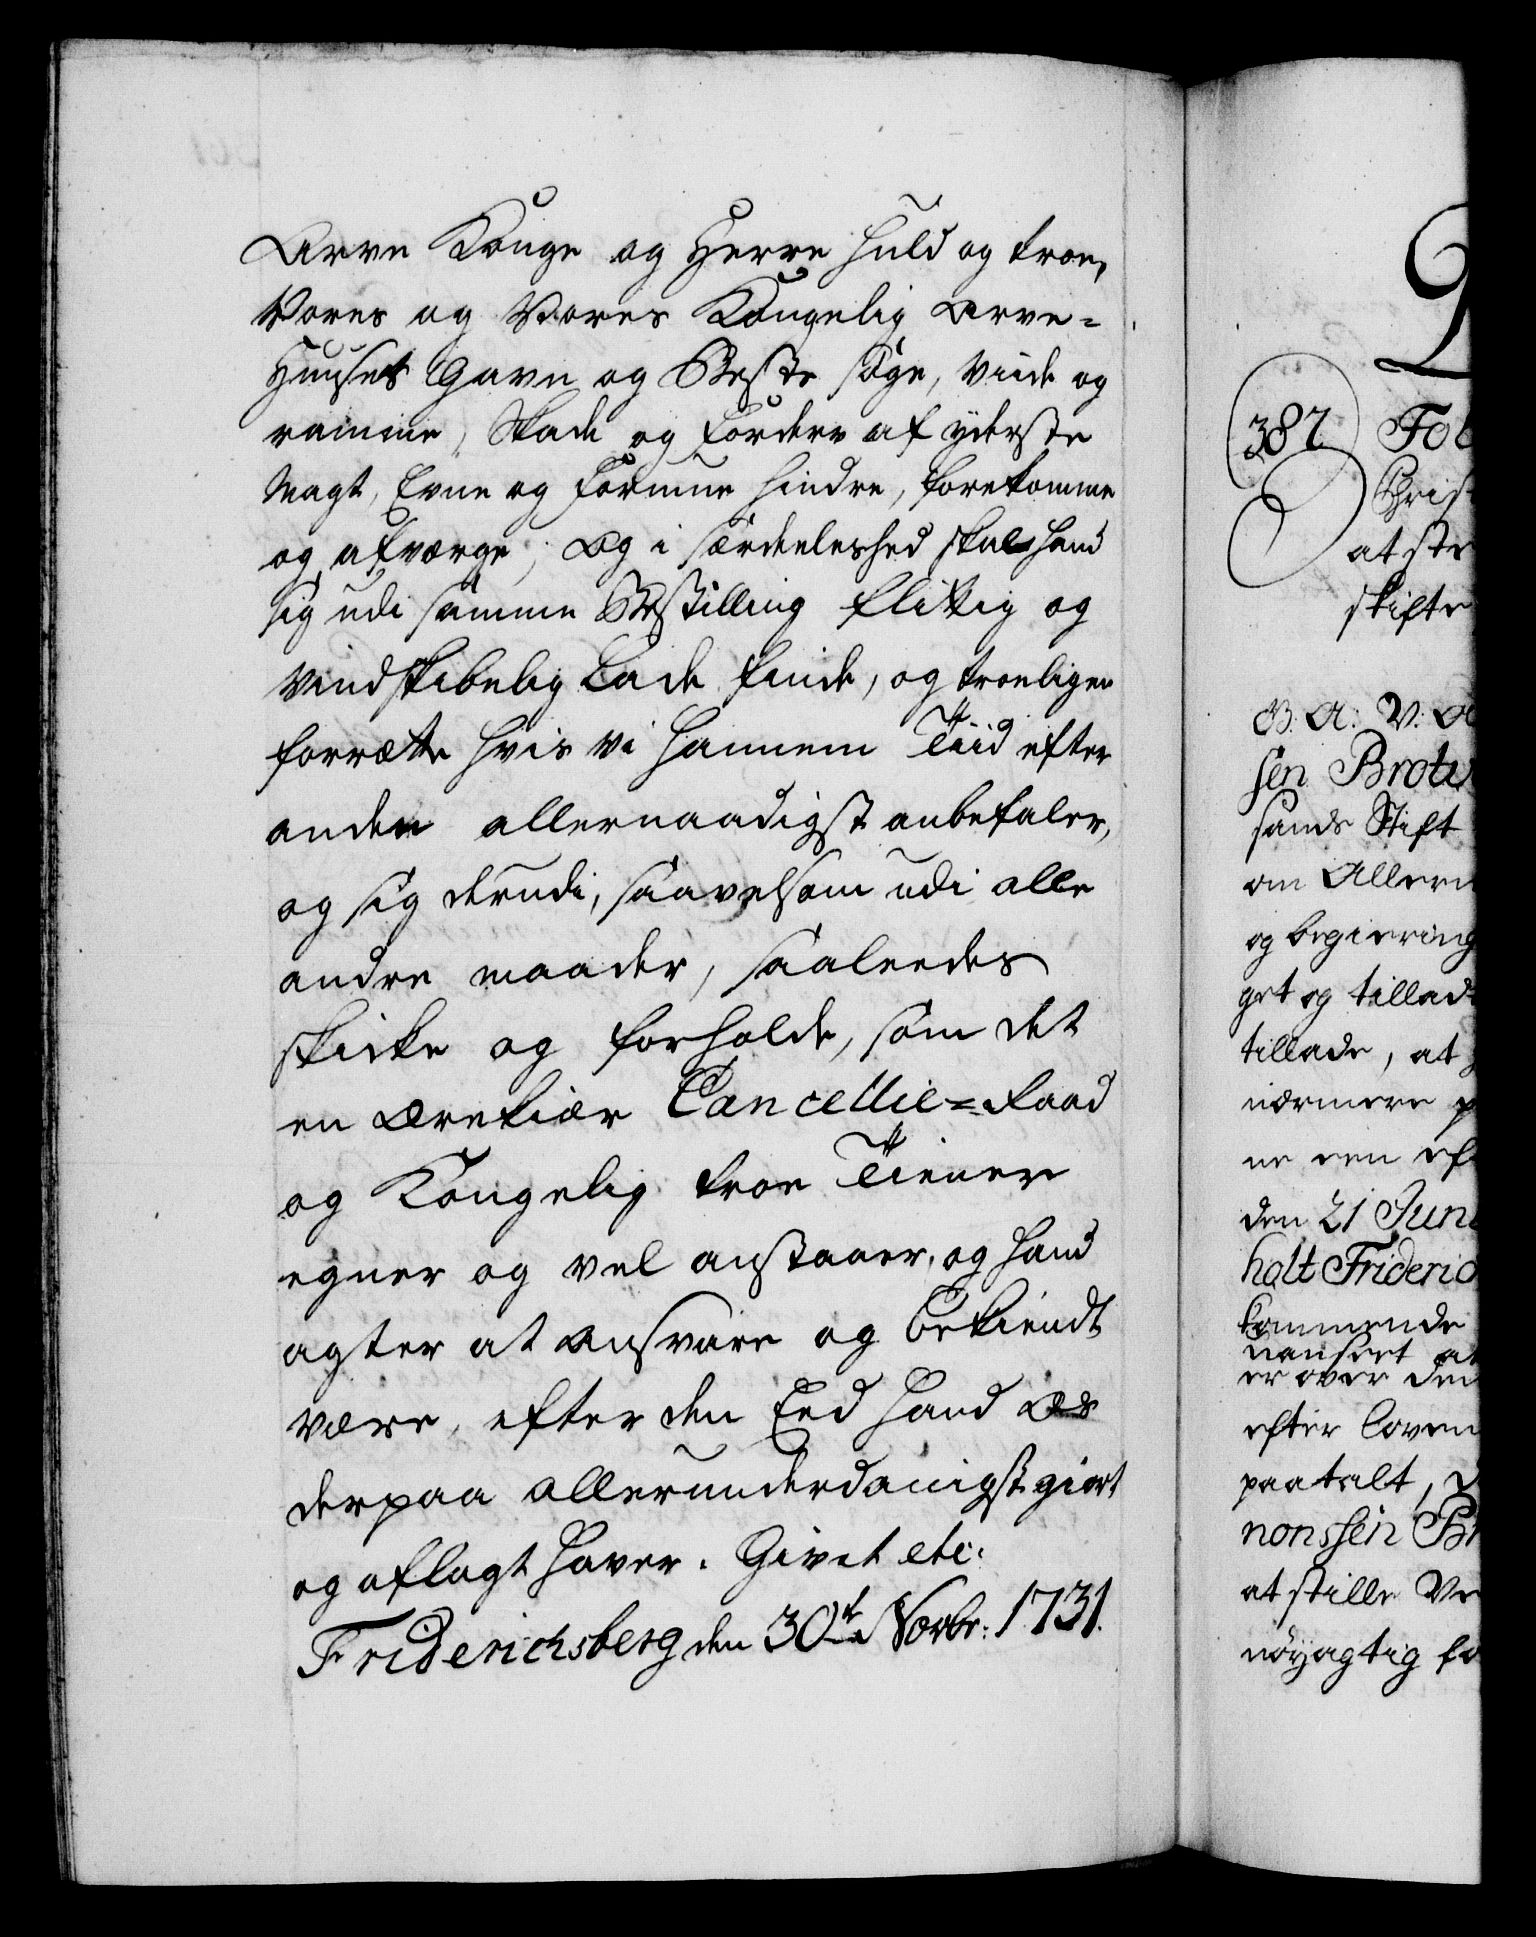 Arve Konge og Herre huld og troe,
Vores og Vores Kongelig Arve=
Huuses Gavn og Beste søge, viide og
ramme, Skade og Forderv af yderste
Magt, Evne og Formue hindre, forekomme
og afværge; Og i særdeeleshed skal hand
sig udi samme Bestilling flitig og
vindskibelig lade finde, og troeligen
forrætte hvis vi hannem Tiid efter
anden allernaadigst anbefaler,
og sig derudi, saavelsom udi alle
andre maader, saaleedes
skicke og forholde, som det
en ærekiær Cancellie=Raad
og Kongelig troe Tiener
egner og vel anstaaer, og hand
agter at ansvare og bekiendt
være, efter den Eed hand os
derpaa allerunderdanigst giort
og aflagt haver. Givet etc:
Friderichsberg den 30te Novbr: 1731.
387
Fol
Christ
at ste
skifte
G: A: V:
sen Brotv
sands Stift
om Allern
og begiering
get og tillad
tillade, at
nærmere p
ne een ef
den 21 Juni
holt Frideric
kommende
uanseet at
er over den
efter loven
paatalt,
nonssen Br
at stille Ve
nøyagtig fo